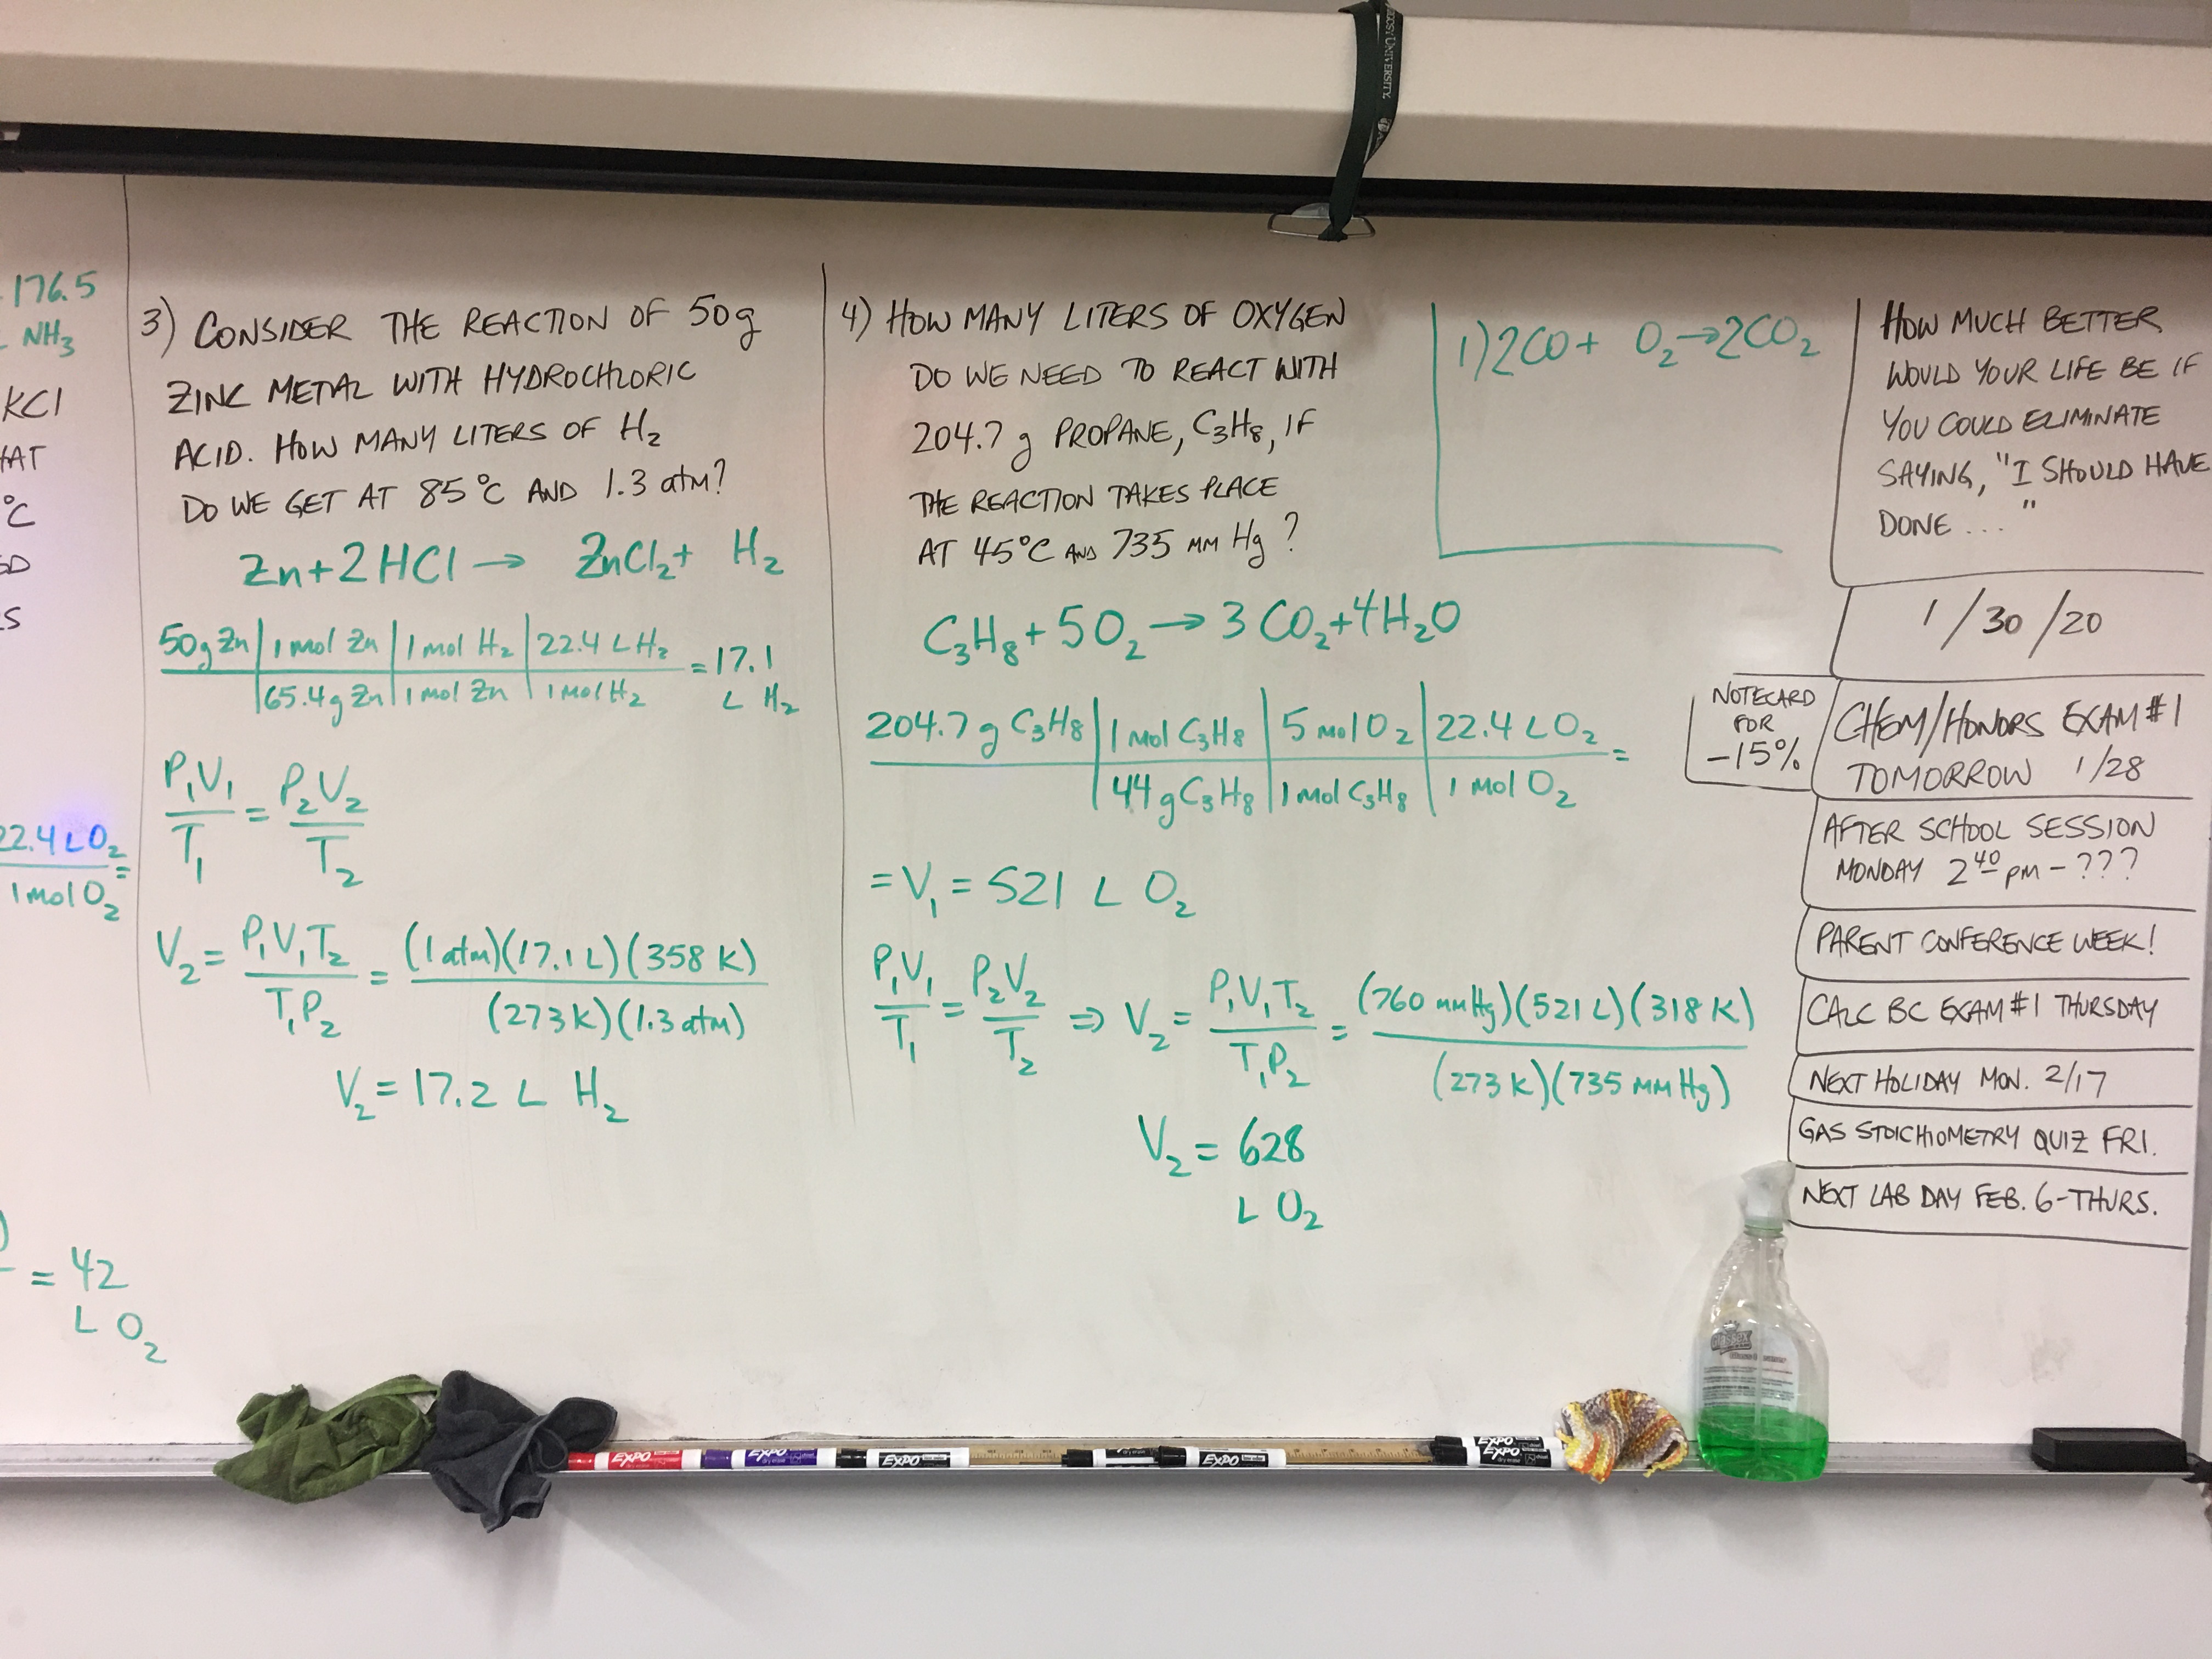 RGOSY UNIVERSITY
176.5
NH₃
KCl
HAT
°C
S
22.4 L O₂ =
1 mol O₂
= 42
L O₂
3) CONSIDER THE REACTION OF 50g
ZINC METAL WITH HYDROCHLORIC
ACID. HOW MANY LITERS OF H₂
DO WE GET AT 85°C AND 1.3 atm?
Zn + 2HCl → ZnCl₂ + H₂
50g Zn | 1 mol Zn | 1 mol H₂ | 22.4 L H₂ = 17.1
65.4g Zn | 1 mol Zn | 1 mol H₂ L H₂
P₁V₁ = P₂V₂
T₁ T₂
V₂ = P₁V₁T₂ = (1 atm)(17.1 L)(358 K)
T₁P₂ (273 K)(1.3 atm)
V₂ = 17.2 L H₂
4) HOW MANY LITERS OF OXYGEN
DO WE NEED TO REACT WITH
204.7 g PROPANE, C₃H₈, IF
THE REACTION TAKES PLACE
AT 45°C AND 735 MM Hg?
C₃H₈ + 5O₂ → 3CO₂ + 4H₂O
204.7 g C₃H₈ | 1 mol C₃H₈ | 5 mol O₂ | 22.4 L O₂ =
44 g C₃H₈ | 1 mol C₃H₈ | 1 mol O₂
= V₁ = 521 L O₂
P₁V₁ = P₂V₂ ⇒ V₂ = P₁V₁T₂ = (760 mmHg)(521 L)(318 K)
T₁ T₂ T₁P₂ (273 K)(735 MM Hg)
V₂ = 628
L O₂
1) 2CO + O₂ → 2CO₂
HOW MUCH BETTER
WOULD YOUR LIFE BE IF
YOU COULD ELIMINATE
SAYING, "I SHOULD HAVE
DONE ... "
1/30/20
NOTECARD
FOR
-15%
CHEM/HONORS EXAM #1
TOMORROW 1/28
AFTER SCHOOL SESSION
MONDAY 2⁴⁰ pm - ???
PARENT CONFERENCE WEEK!
CALC BC EXAM #1 THURSDAY
NEXT HOLIDAY MON. 2/17
GAS STOICHIOMETRY QUIZ FRI.
NEXT LAB DAY FEB. 6 - THURS.
EXPO
EXPO
EXPO
EXPO
EXPO
EXPO